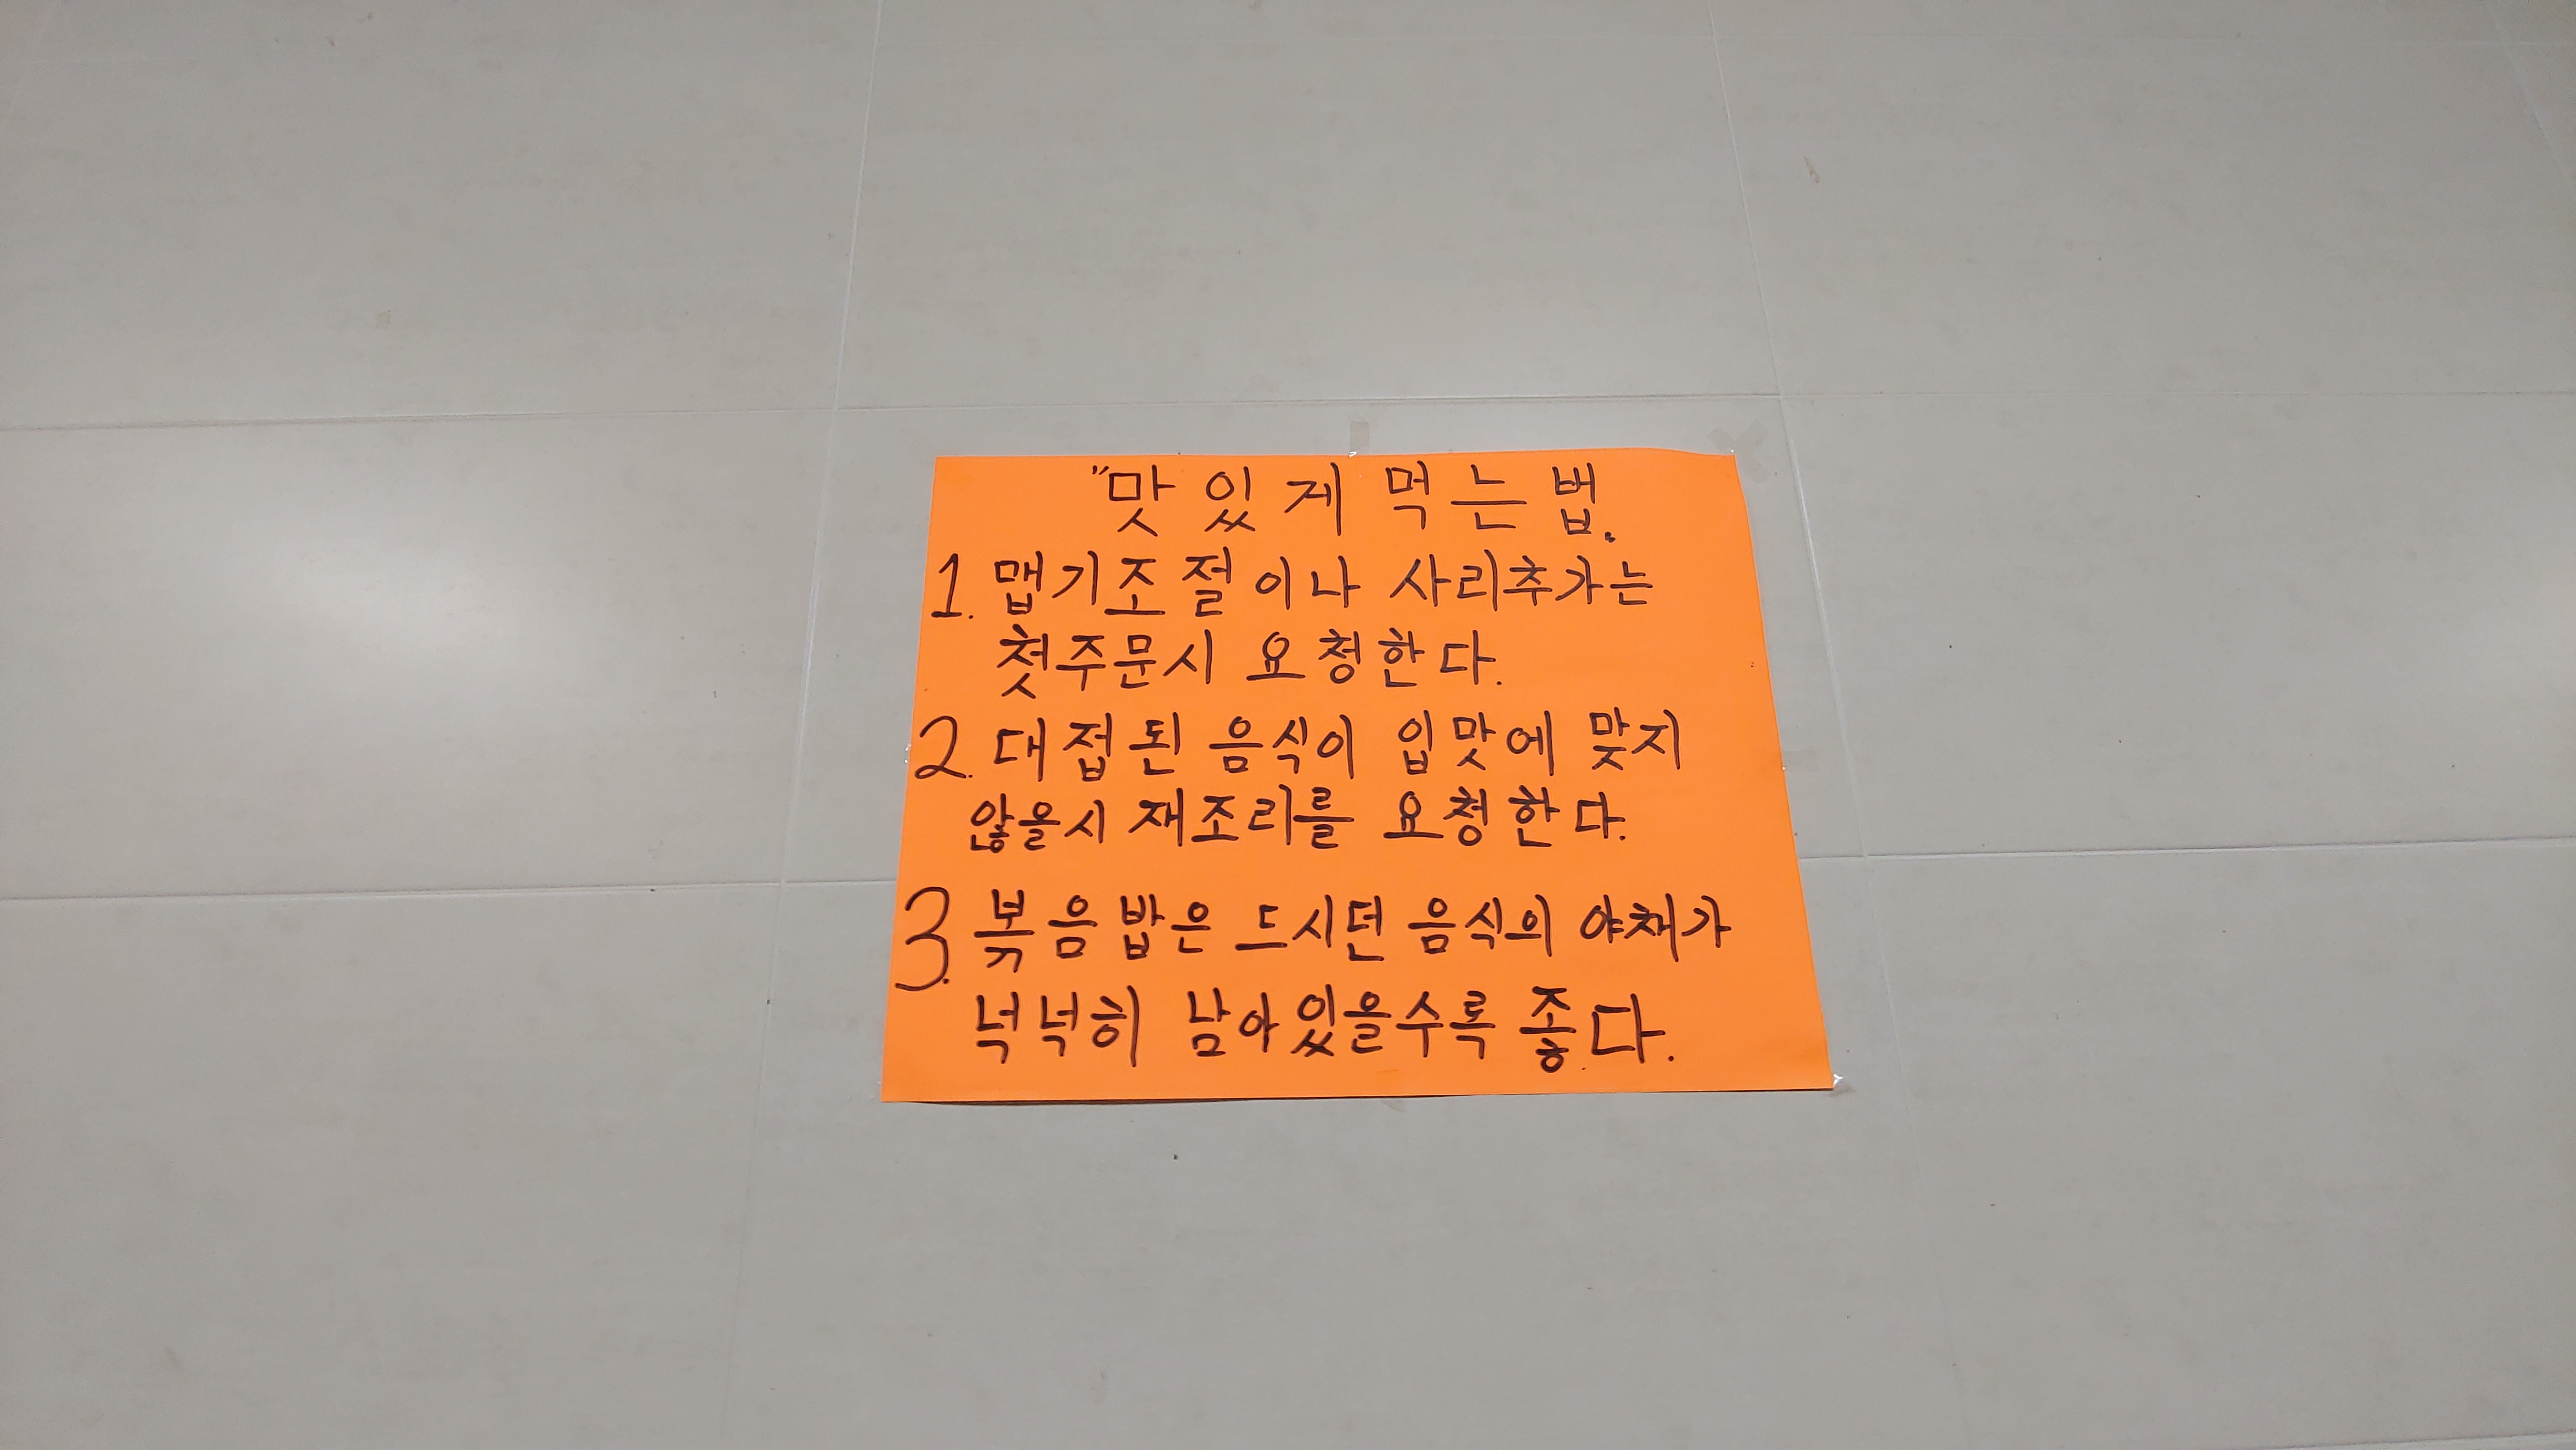 "맛있게 먹는 법.
1. 맵기조절이나 사리추가는
첫주문시 요청한다.
2. 대접된 음식이 입맛에 맞지
않을시 재조리를 요청한다.
3. 볶음밥은 드시던 음식의 야채가
넉넉히 남아있을수록 좋다.